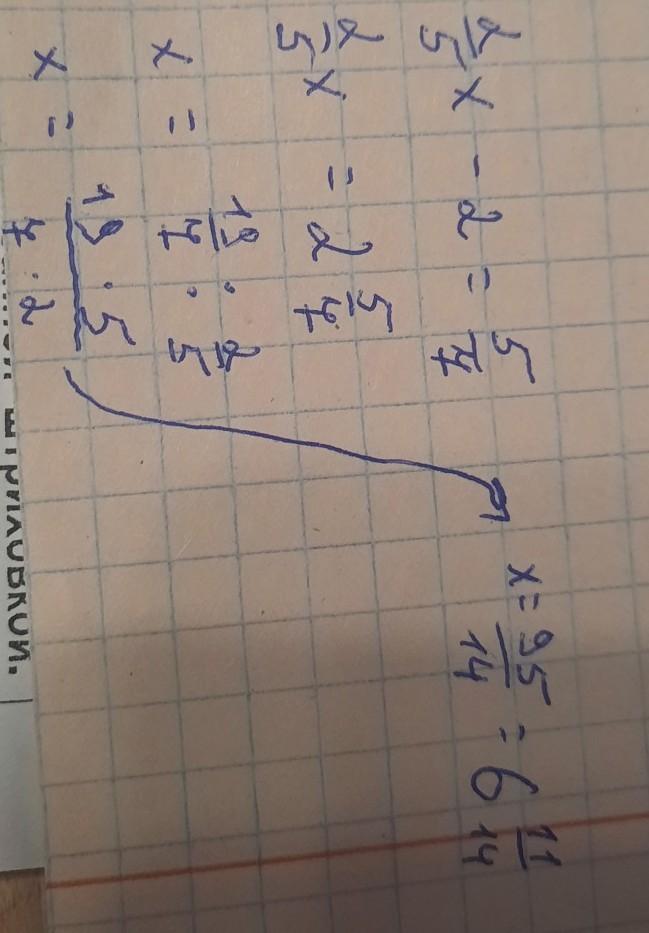 2/5 x - 2 = 5/7
2/5 x = 2 5/7
x = 19/7 : 2/5
x = 19 · 5 / 7 · 2
x = 95/14 = 6 11/14
штриховкой.